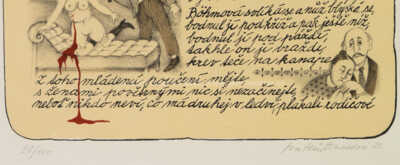 Böhmová svlíká se, a nůž blýská se,
bodnul ji pod kříž a pak ještě níž,
bodnul ji pod paždí,
takhle on ji vraždí,
krev teče na kanape
Z toho mládenci poučení mějte,
s ženami pověstnými nic si nezačínejte
neboť nikdo neví, co má druhej v ledví, plakali rodičové